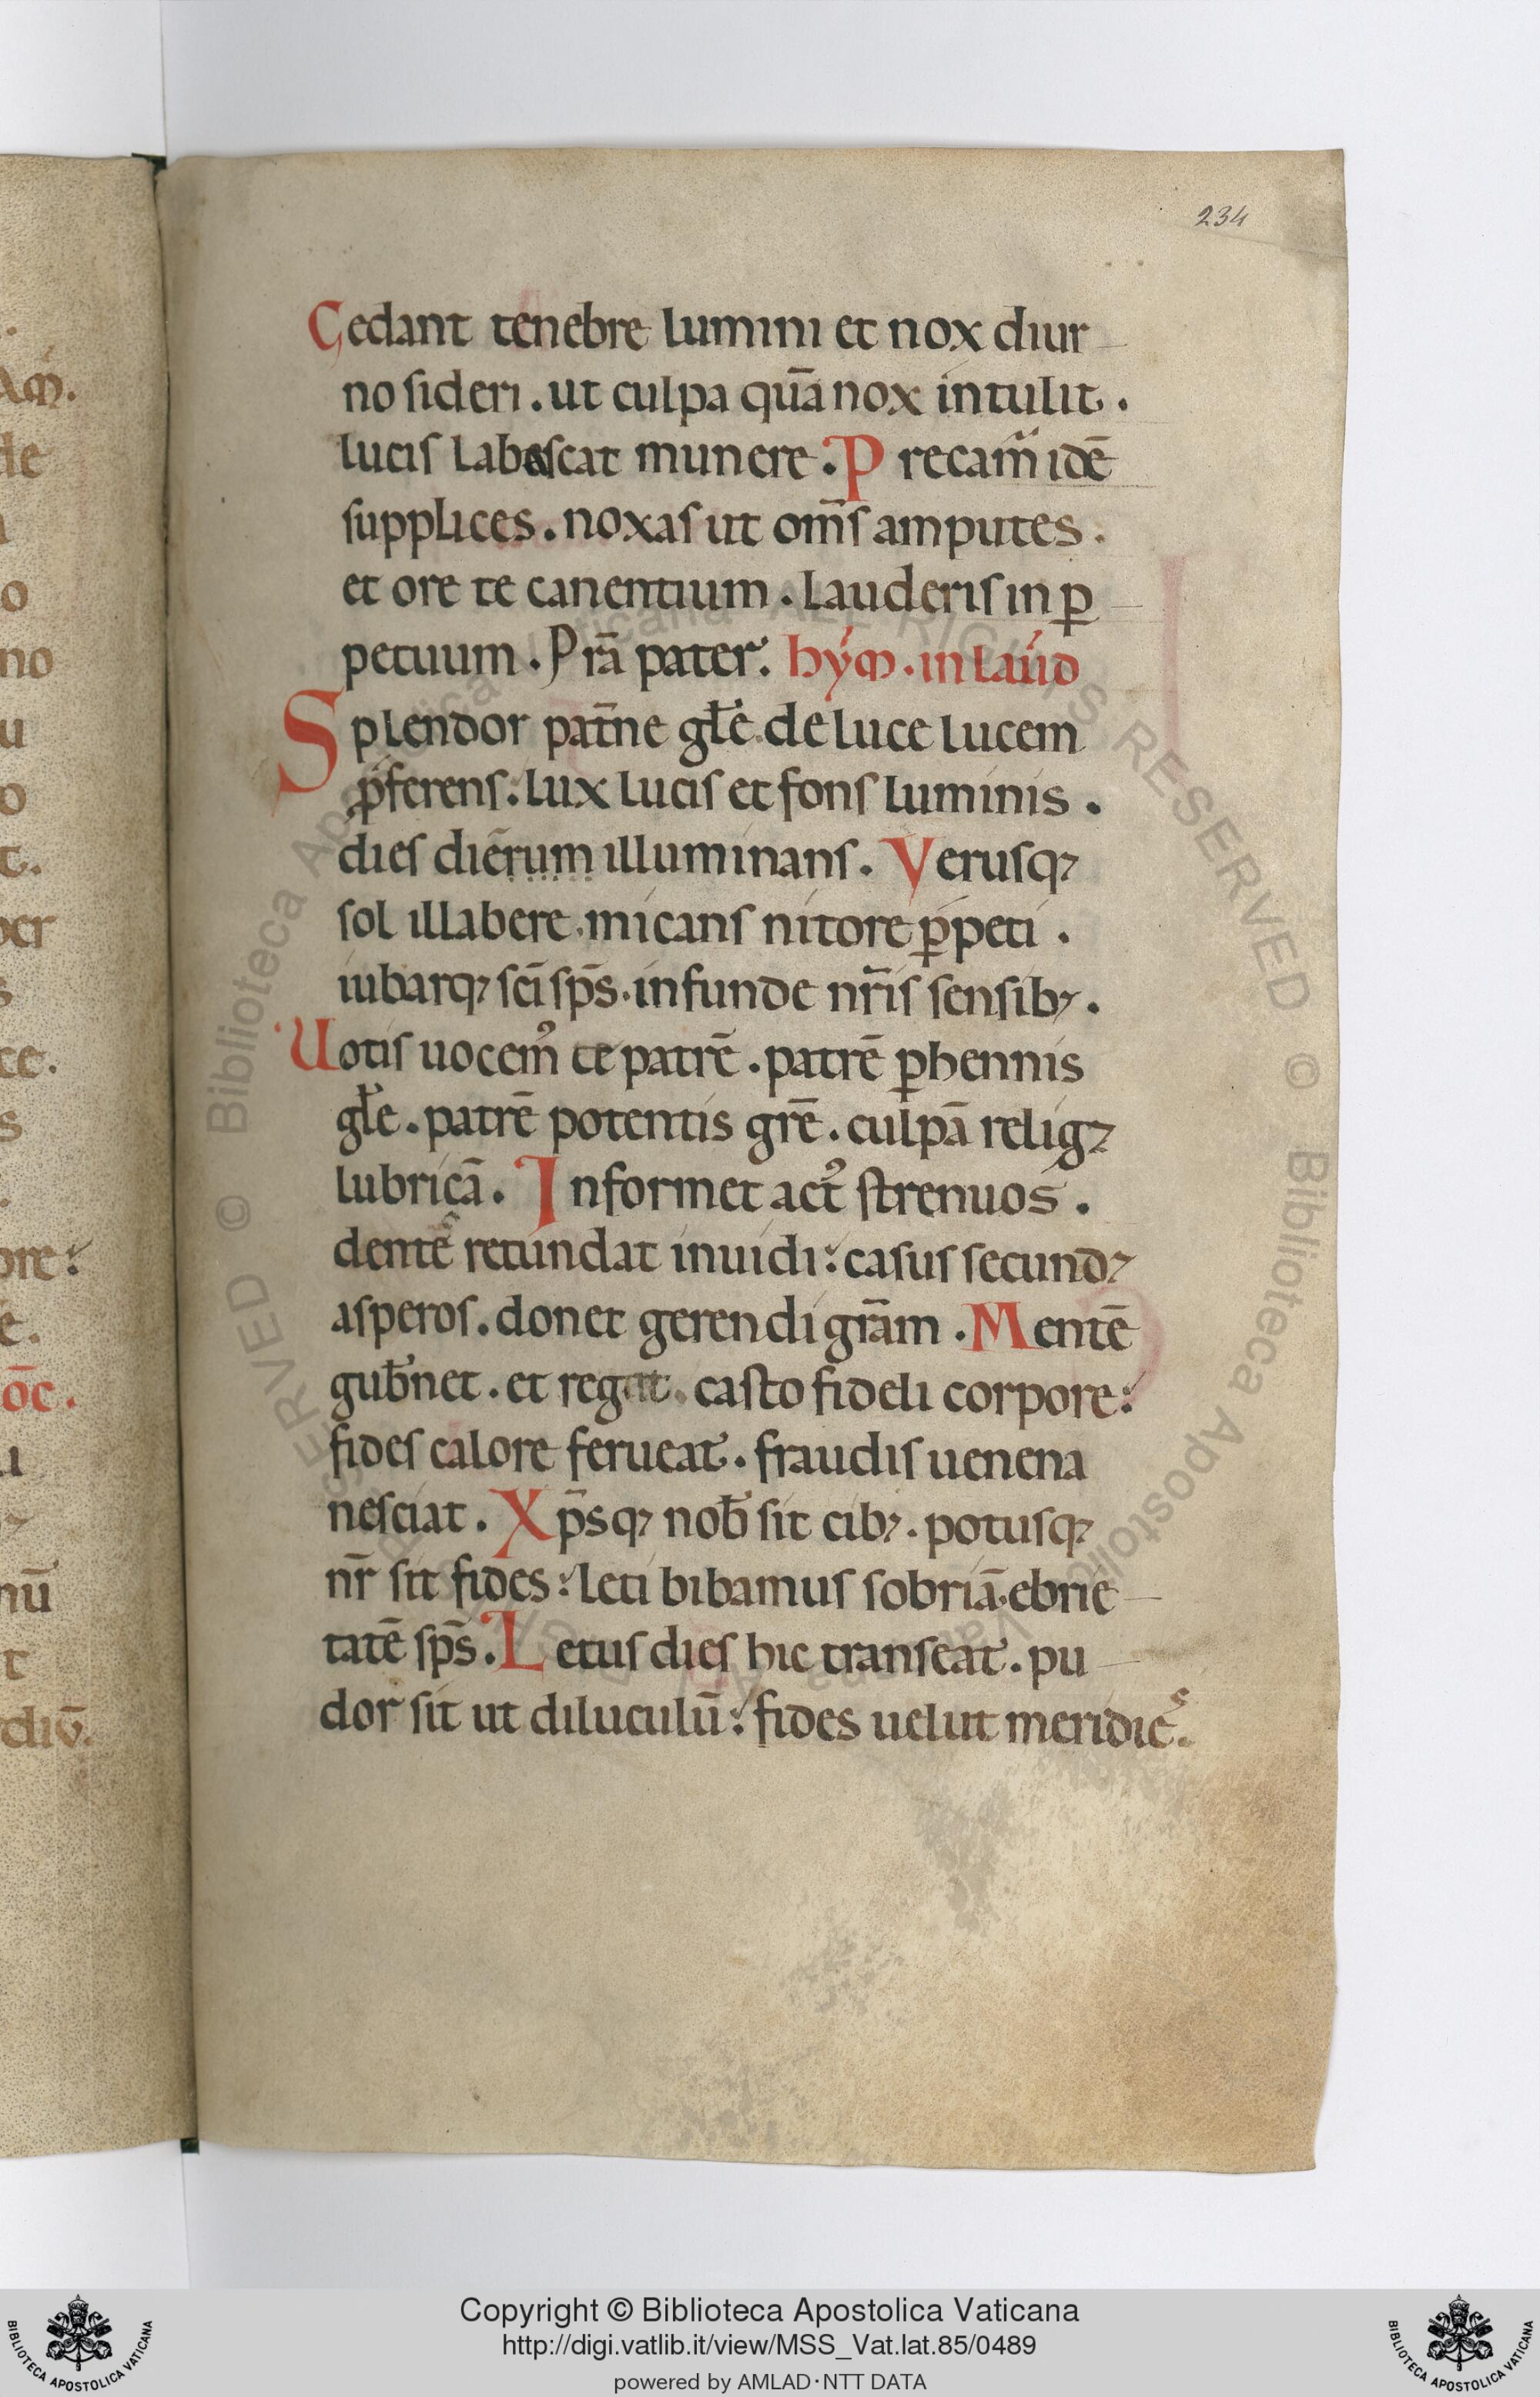 234
Cedant tenebre lumini et nox diur
no sideri. ut culpa quā nox intulit.
lucis labascat munere. Precam᷑ idē
supplices. noxas ut om̄s amputes.
et ore te canentium. lauderis in ꝑ
petuum. Prā pater. hym̄. in laud
Splendor pat̄ne gl̄e. de luce lucem
p̄ferens. lux lucis et fons luminis.
dies diērum illuminans. Verusqꝫ
sol illabere. micans nitore ꝑpeti.
iubarqꝫ sc̄i sp̄s. infunde nr̄is sensibꝫ.
Uotis uocemꝰ te patrē. patrē ꝑhennis
gl̄e. patrē potentis grē. culpā religꝫ
lubricā. Informet actꝰ strenuos.
dentēs retundat inuidi: casus secundꝫ
asperos. donet gerendi grām. Mentē
gub̄net. et regat. casto fideli corpore:
fides calore ferueat. fraudis uenena
nesciat. Xp̄sqꝫ nob̄ sit cibꝫ. potusqꝫ
nr̄ sit fides: leti bibamus sobriā. ebrie
tatē sp̄s. Letus dies hic transeat. pu
dor sit ut diluculū: fides uelut meridiēs.
Copyright © Biblioteca Apostolica Vaticana
http://digi.vatlib.it/view/MSS_Vat.lat.85/0489
powered by AMLAD·NTT DATA
BIBLIOTECA APOSTOLICA VATICANA
BIBLIOTECA APOSTOLICA VATICANA